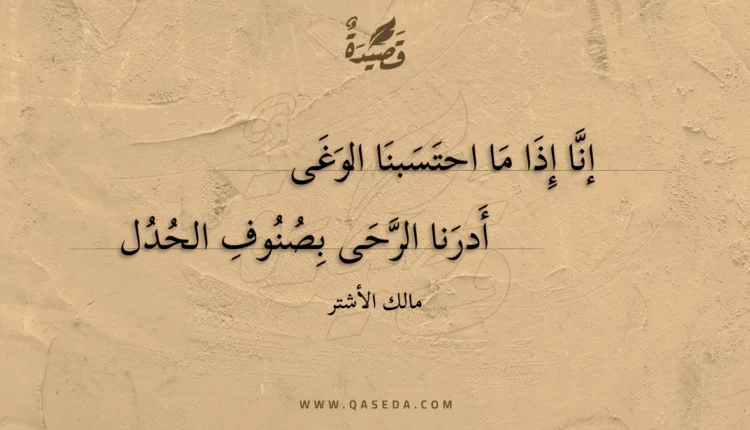 قَصِيدَةٌ
إنَّا إِذَا مَا احتَسَبنَا الوَغَى
أَدرَنا الرَّحَى بِصُنُوفِ الحُدُل
مالك الأشتر
WWW.QASEDA.COM